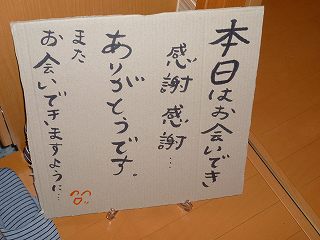 本日はお会いでき
感謝感謝…
ありがとうです。
また
お会いできますように…